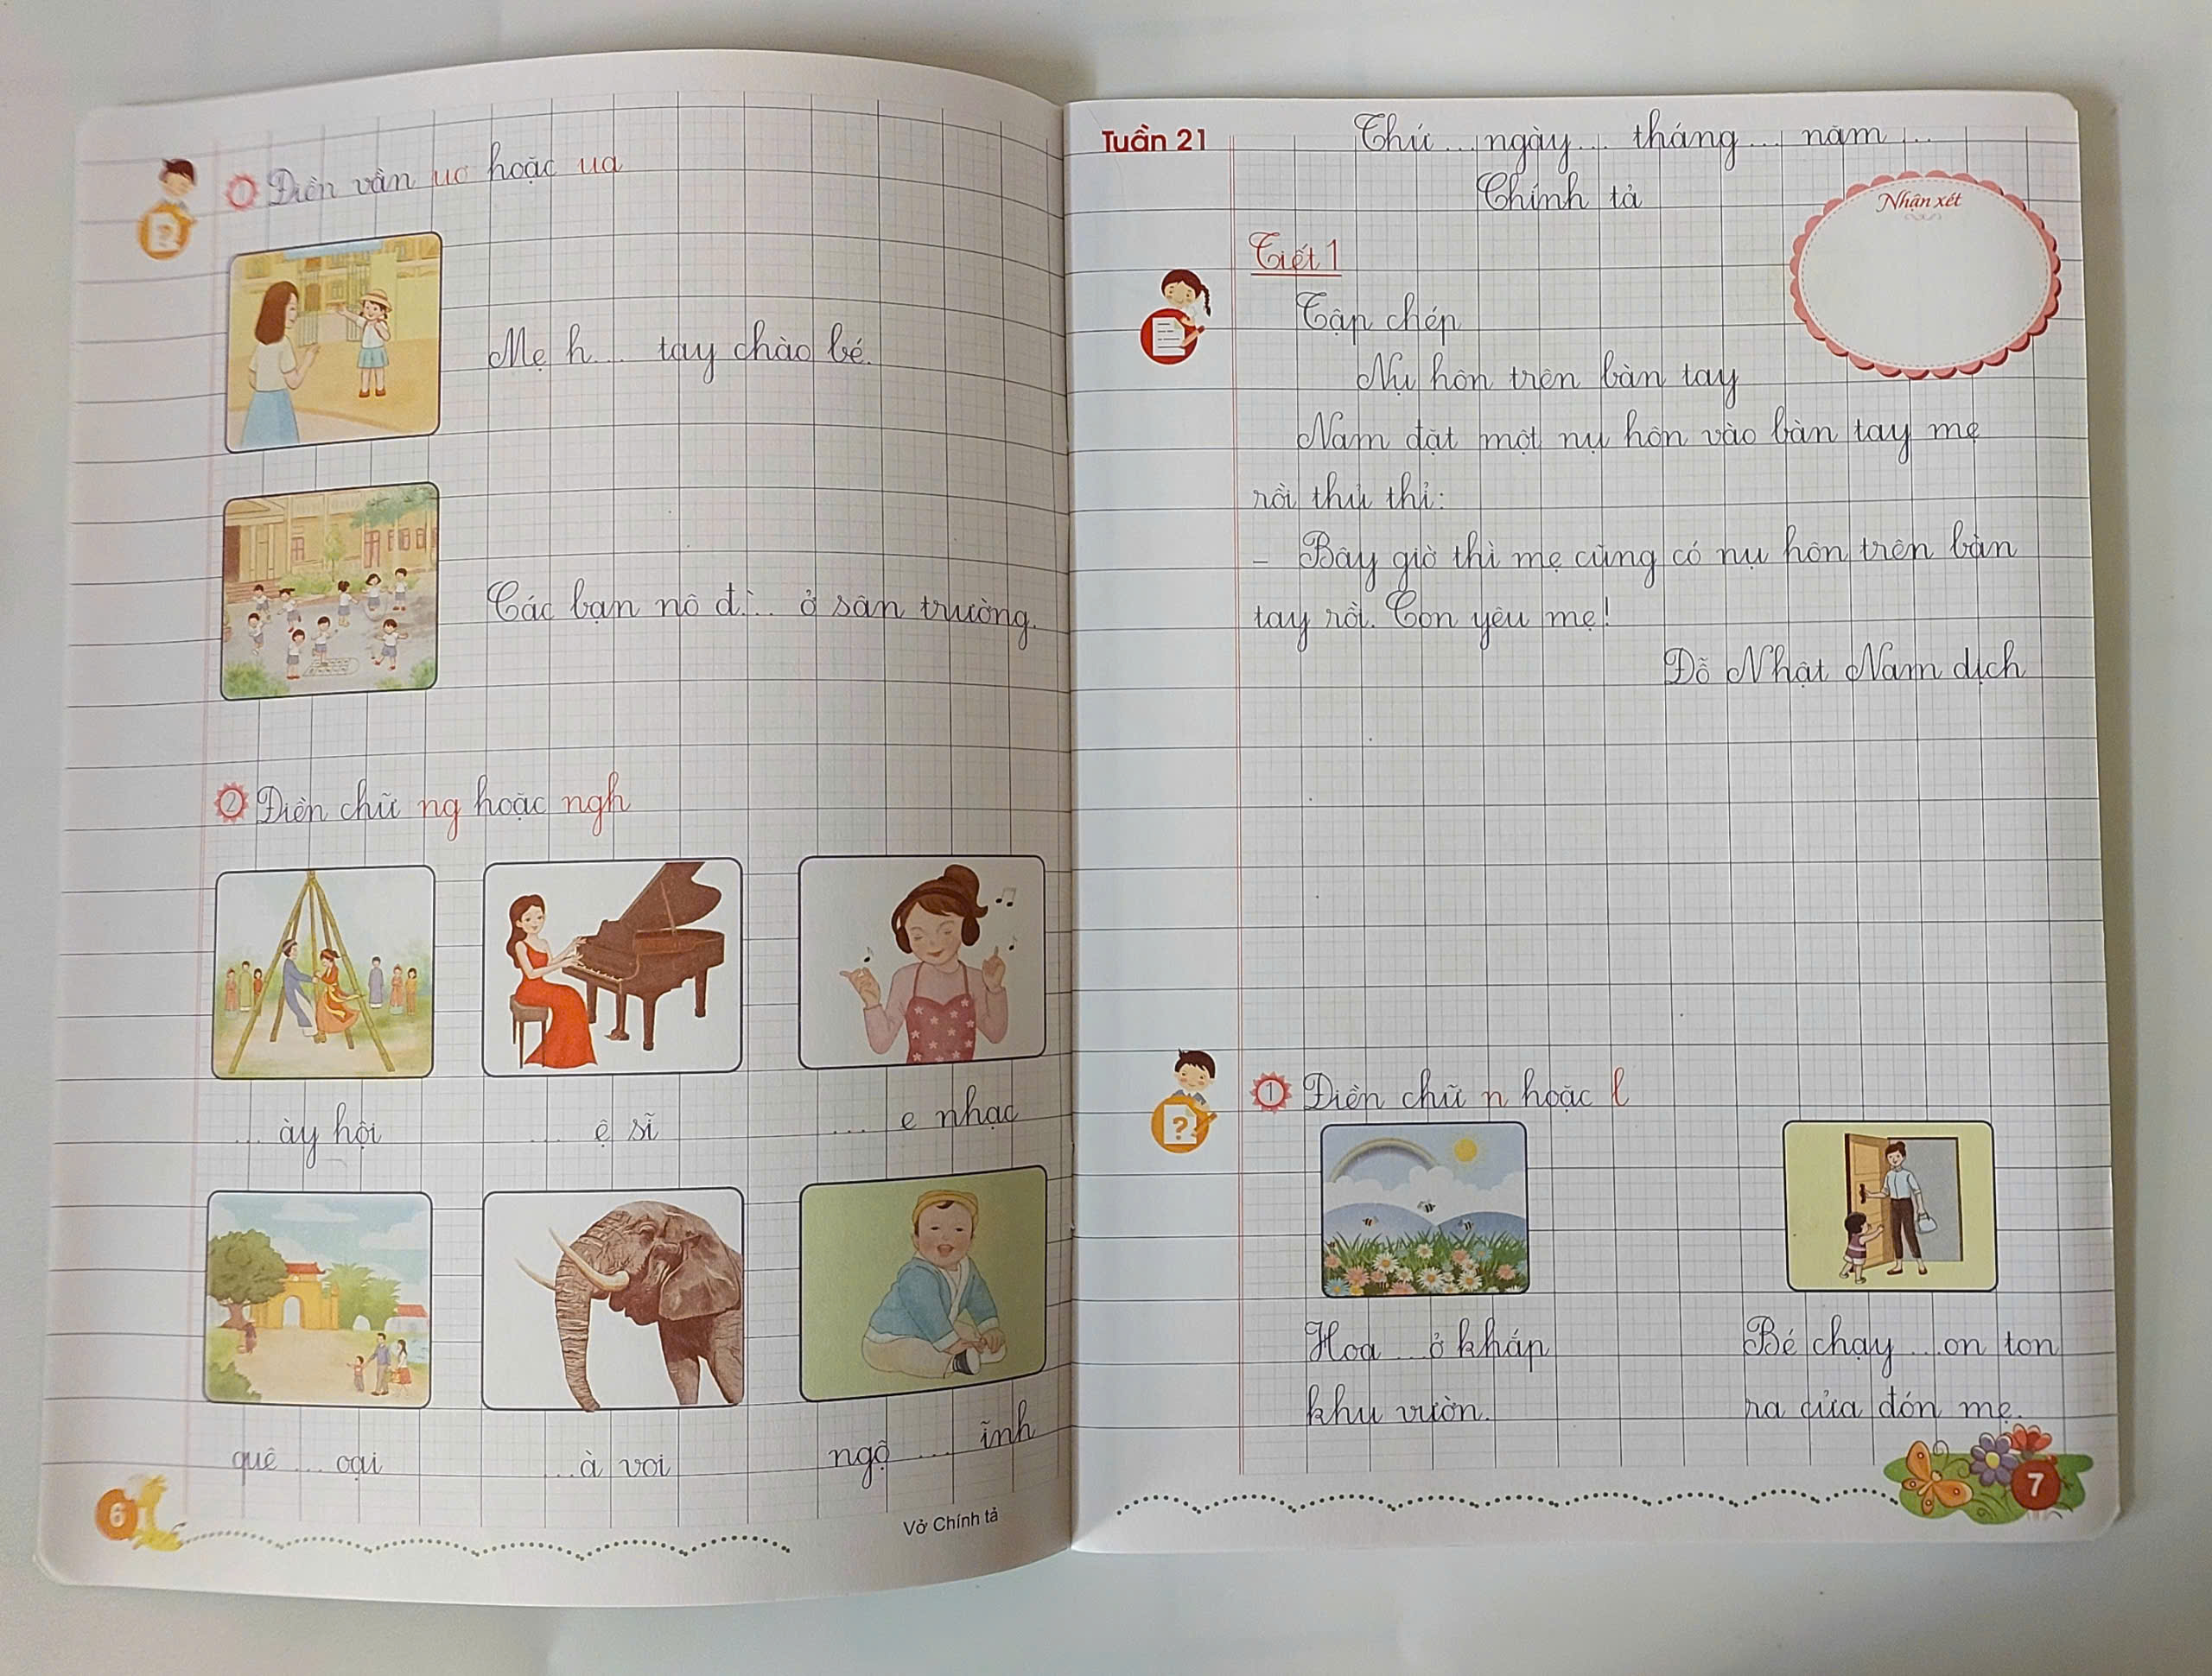 1 Điền vần uơ hoặc ua
Mẹ h... tay chào bé.
Các bạn nô đ... ở sân trường.
2 Điền chữ ng hoặc ngh
... ày hội
... ệ sĩ
... e nhạc
quê ... oại
... à voi
ngộ ... ĩnh
6
Vở Chính tả
Tuần 21
Thứ ... ngày ... tháng ... năm ...
Chính tả
Nhận xét
Tiết 1
Tập chép
Nụ hôn trên bàn tay
Nam đặt một nụ hôn vào bàn tay mẹ
rồi thủ thỉ:
– Bây giờ thì mẹ cũng có nụ hôn trên bàn
tay rồi. Con yêu mẹ!
Đỗ Nhật Nam dịch
1 Điền chữ n hoặc l
Hoa ... ở khắp
khu vườn.
Bé chạy ... on ton
ra cửa đón mẹ.
7